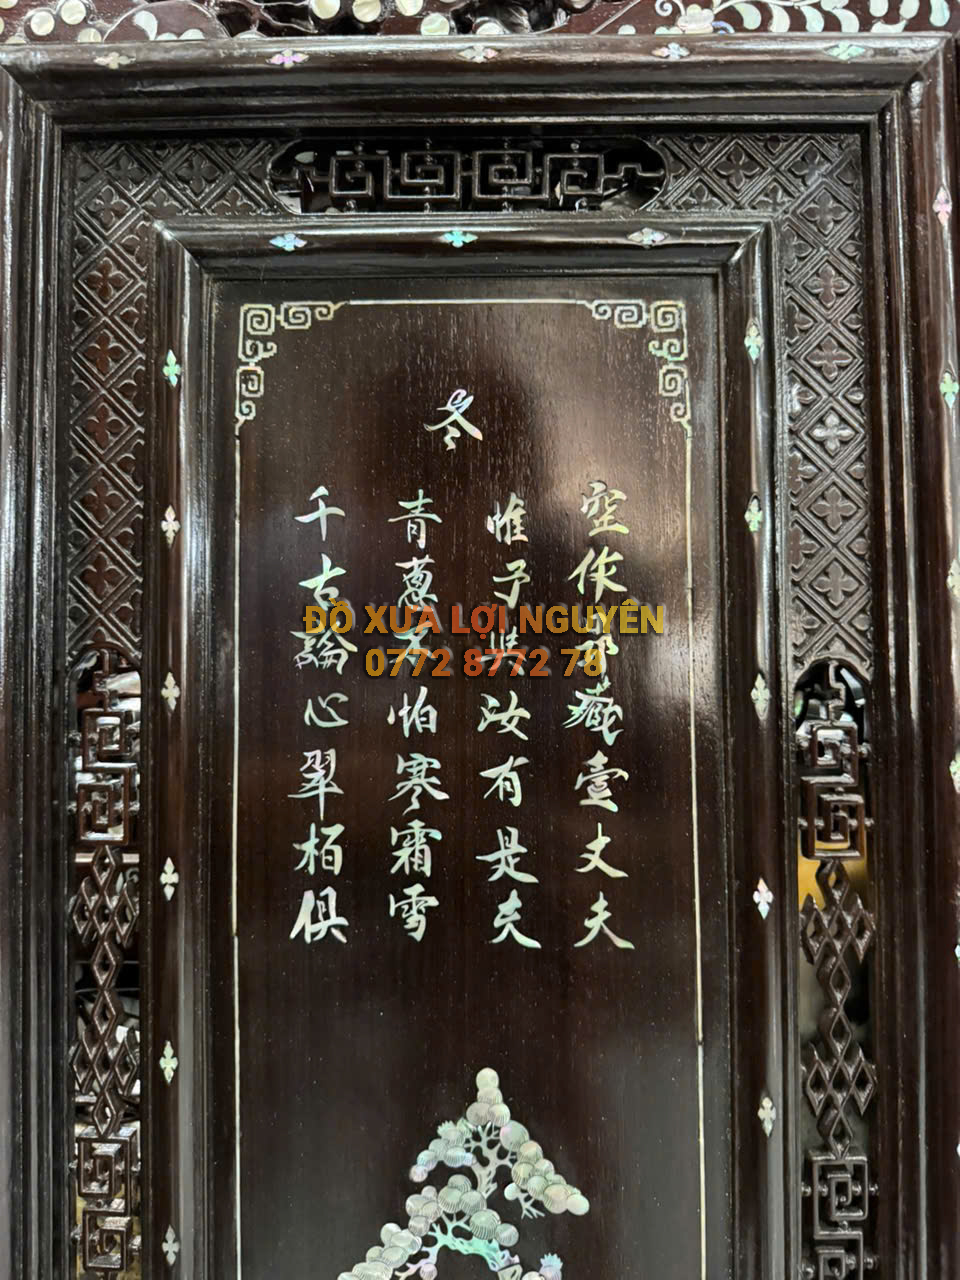 冬
空作行藏壹丈夫
惟予與汝有是夫
青蔥不怕寒霜雪
千古論心翠栢俱
ĐỒ XƯA LỢI NGUYÊN
0772 8772 78